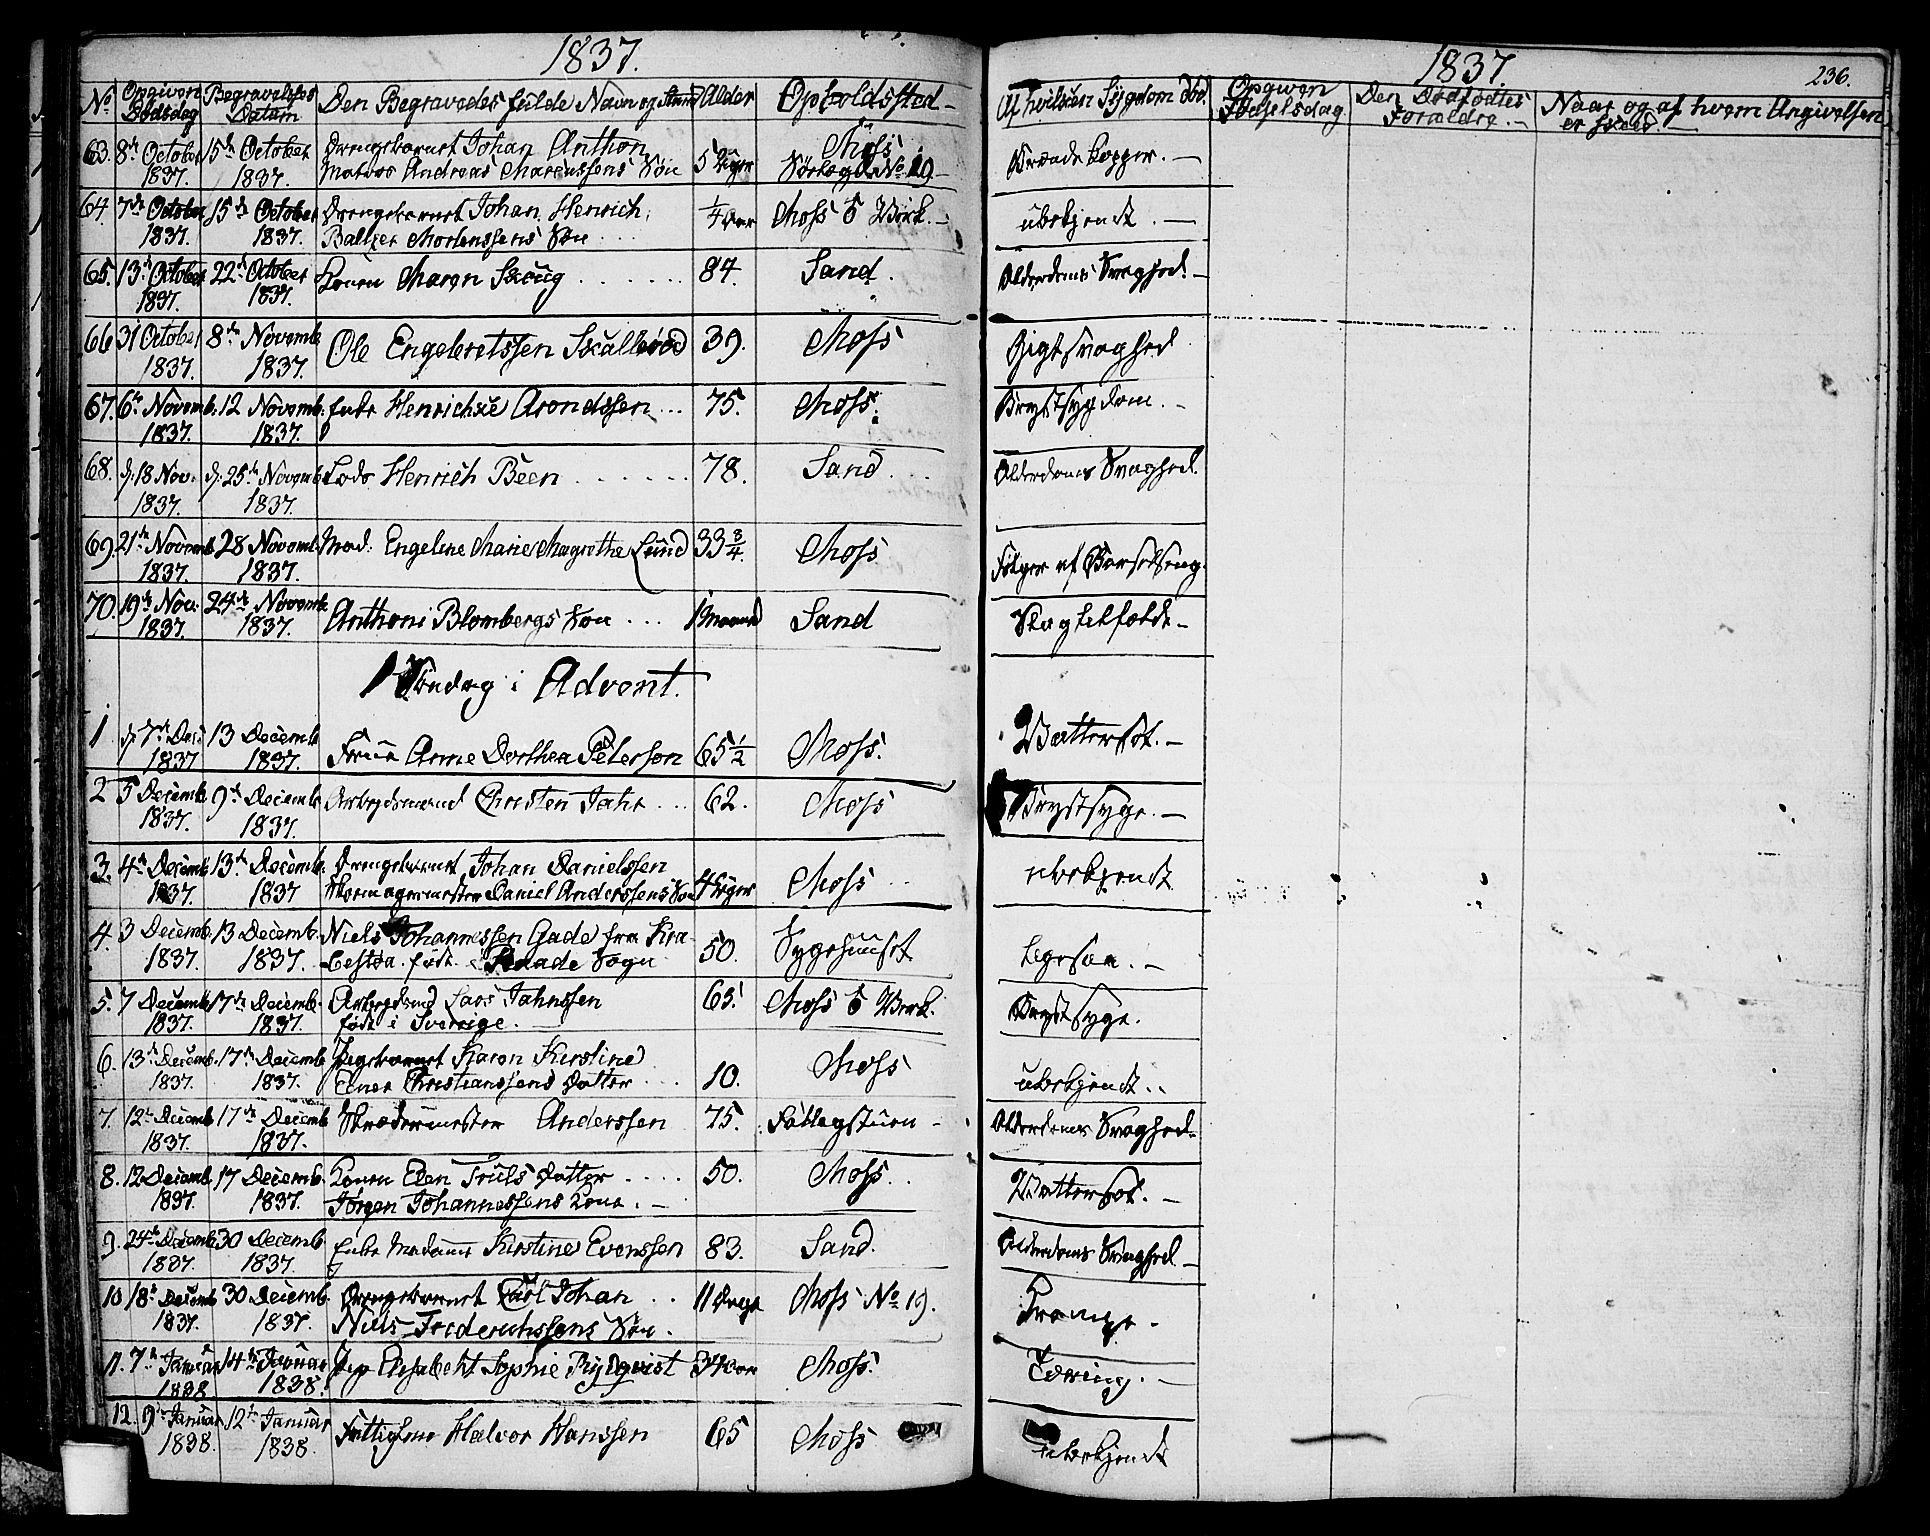 1837.
No Opgiven Dödsdag Begravelses Datum Den Begravedes fulde Navn og Stand Alder Opholdssted
63. 8de October 1837. 15de October 1837. Drengebarnet Johan Anthon Andreas Marcussens Sön 5 Uger Moss No 19
64. 7de October 1837. 15de October 1837. Drengebarnet Johan Henrich, Baltzer Mortenssens Sön 1/4 Aar Moss Værk.
65. 13de October 1837. 22de October 1837. Konen Maren Skoug 84. Sand.
66 31 October 1837. 8de Novemb 1837. Ole Engebretssen Skallerød 39. Moss
67. 6te Novemb. 1837. 12 Novemb. 1837. Enke Henrichse Arendssen 75. Moss.
68. d. 18 Nov. 1837. d. 25de Novemb 1837. Lods Henrich Been 78. Sand
69. 21de Novemb 1837. 28 Novemb. 1837. Mad. Engeline Marie Magrethe Lund 33 3/4. Moss
70. 19de Nov. 1837. 24de Novemb 1837. Anthoni Blombergs Sön 1 Maaned Sand
1 Söndag i Advent.
1 d. 7de Dec. 1837 13 Decemb 1837. Frue Anne Dorthea Peterson 65 1/2 Moss.
2 5 Decemb 1837. 9de Decemb 1837. Arbejdsmand Christen Jahr 62. Moss
3. 4de Decemb 1837. 13de Decemb. 1837 Drengebarnet Johan Danielssen Skomagermester Daniel Anderssens Sön 4 Uger Moss
4. 3 Decemb. 1837. 13 Decemb. 1837. Niels Johannessen Gade fra Kra- född Raade Sogn 50. Sygehuuset
5. 7 Decemb 1837. 17de Decemb. 1837. Arbeydsmd Lars Jahnssen född i Sverrige. 65. Moss Værk.
6. 13de Decemb. 1837. 17de Decemb 1837. Pigebarnet Karen Kirstine Christianssens Datter 10. Moss
7. 12te Decemb 1837. 17de Decemb 1837. Skrædermester Anderssen 75. Fattigstuen
8. 12 Decemb. 1837. 17 Decemb. 1837. Konen Elen Truls Datter Jørgen Johannessens Kone. 50. Moss.
9. 24de Decemb 1837. 30 Decemb. 1837. Enke Madame Kirstine Evenssen 83. Sand.
10 18de Decemb 1837. 30 Decemb. 1837. Drengebarnet Carl Johan Niels Frederichssens Sön. 11 Dage Moss No 19.
11. 7de Januar 1838 14de Januar 1838. Jep Elisabeht Sophie Rydqvist 34 Aar Moss.
12. 9de Januar 1838. 12te Januar 1838. Fattiglem Halvor Hanssen 65 Moss
1837. 236.
Af hvilken Sygdom död. Opgiven Födselsdag. Den Dødfødtes Forældre. Naar og af hvem Angivelsen er skeed.
Kopper.
ubekjendt.
Alderdoms Svaghed.
Gigtsvaghed
Brystsygdom.
Alderdoms Svaghed.
Fölger af Barselseng.
Slagtilfælde
Vattersot.
Brystsyge.
ubekjendt
Brystsyge.
ubekjendt.
Alderdoms Svaghed.
Vattersot.
Alderdoms Svaghed.
Krampe.
Tæring.
ubekjendt